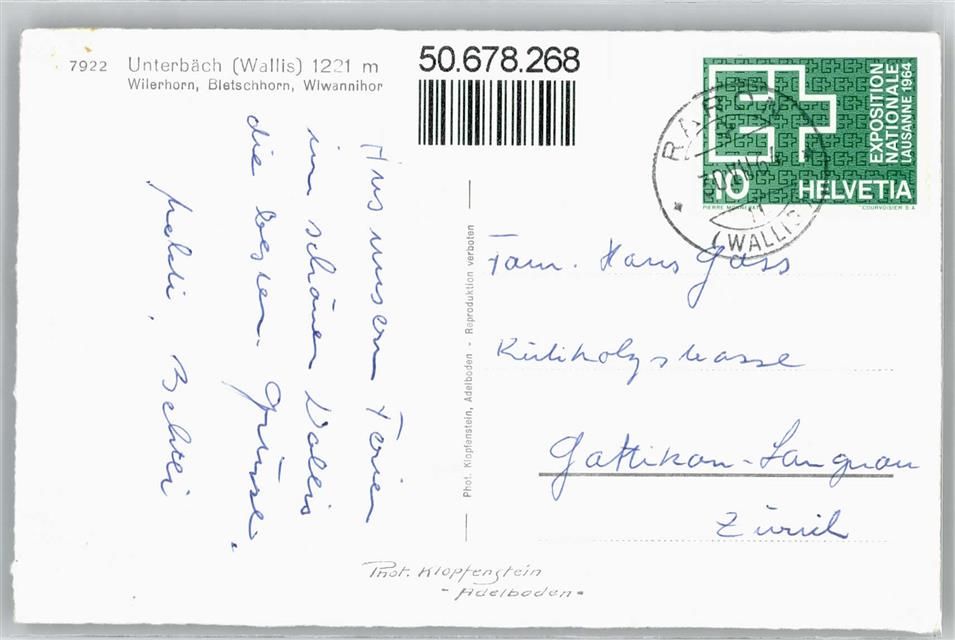 7922 Unterbäch (Wallis) 1221 m
Wilerhorn, Bietschhorn, Wiwannihor
50.678.268
Aus unsern Ferien
im schönen Wallis
die besten Grüsse.
Bethli
Phot. Klopfenstein, Adelboden - Reproduktion verboten
EXPOSITION
NATIONALE
LAUSANNE 1964
10 HELVETIA
PIERRE MONNERAT "COURVOISIER S.A.
RARON
(WALLIS)
Fam. Hans Gass
Rütiholzstrasse
Gattikon-Langnau
Zürich
Phot. Klopfenstein
- Adelboden -